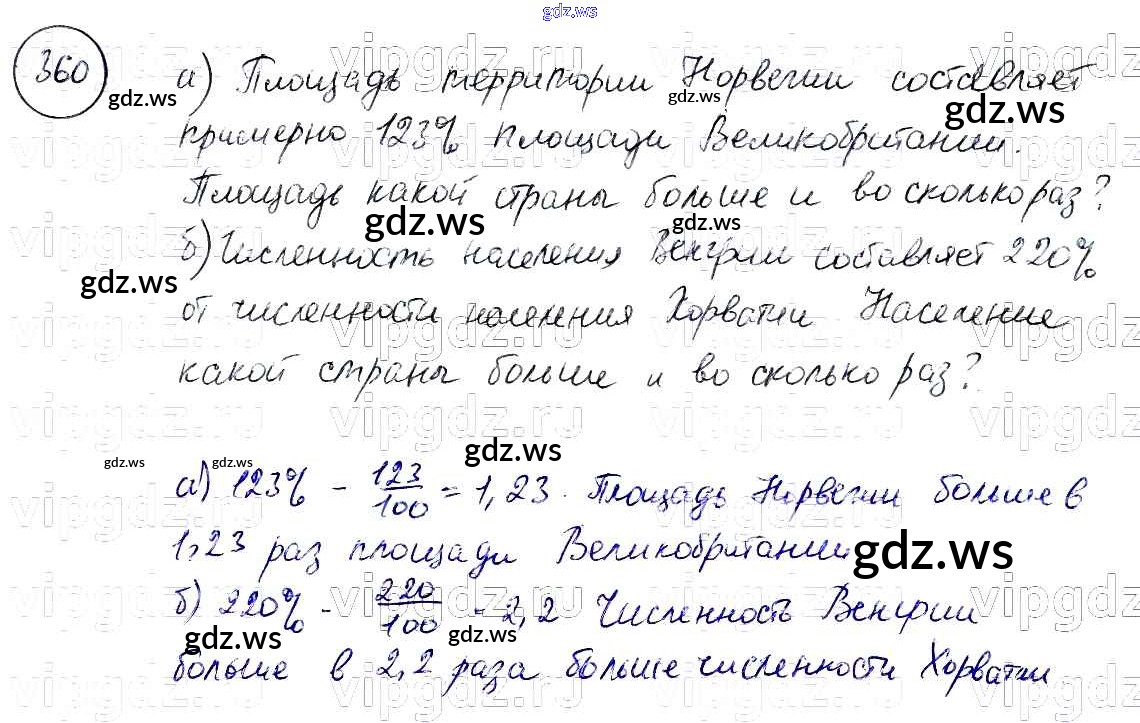 gdz.ws
360
а) Площадь территории Норвегии составляет
gdz.ws gdz.ws gdz.ws
примерно 123% площади Великобритании.
Площадь какой страны больше и во сколько раз?
gdz.ws gdz.ws
б) Численность населения Венгрии составляет 220%
gdz.ws
от численности населения Хорватии Население
какой страны больше и во сколько раз?
gdz.ws
gdz.ws gdz.ws
а) 123% - 123/100 = 1,23. Площадь Норвегии больше в
1,23 раз площади Великобритании
gdz.ws
б) 220% - 220/100 - 2,2 Численность Венгрии
gdz.ws gdz.ws
больше в 2,2 раза больше численности Хорватии